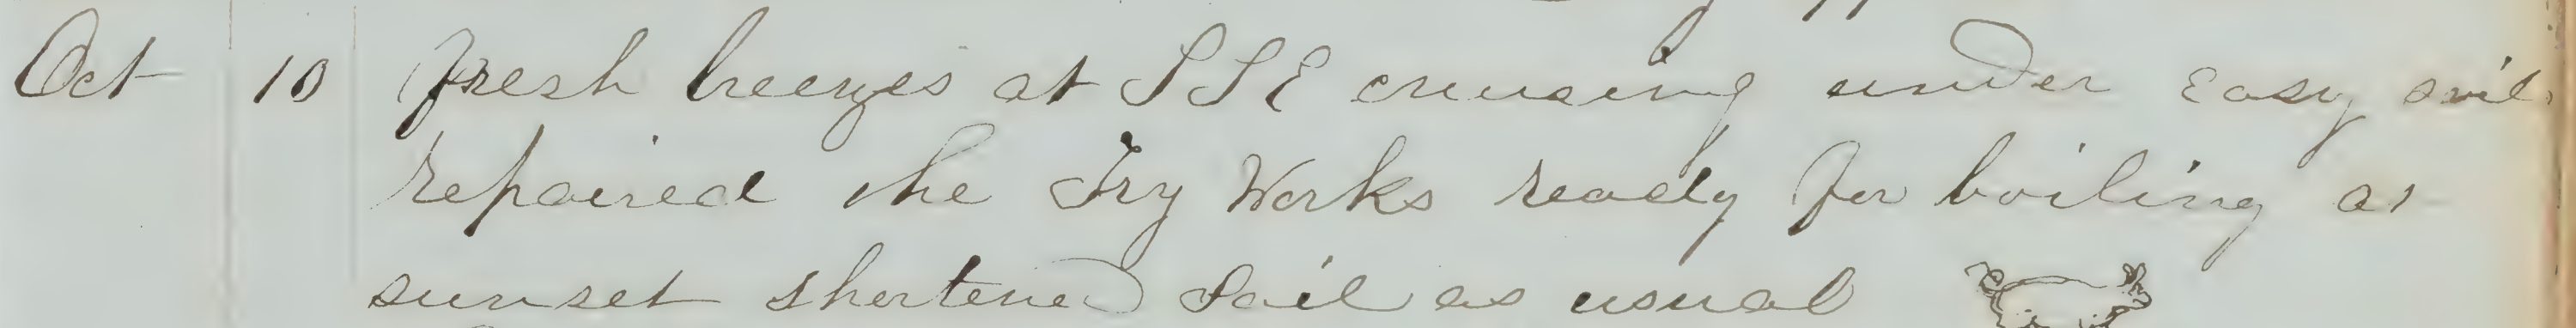 Oct 10 fresh breezes at SSE cruising under Easy sail
repaired the Try Works ready for boiling at
sunset shortened Sail as usual